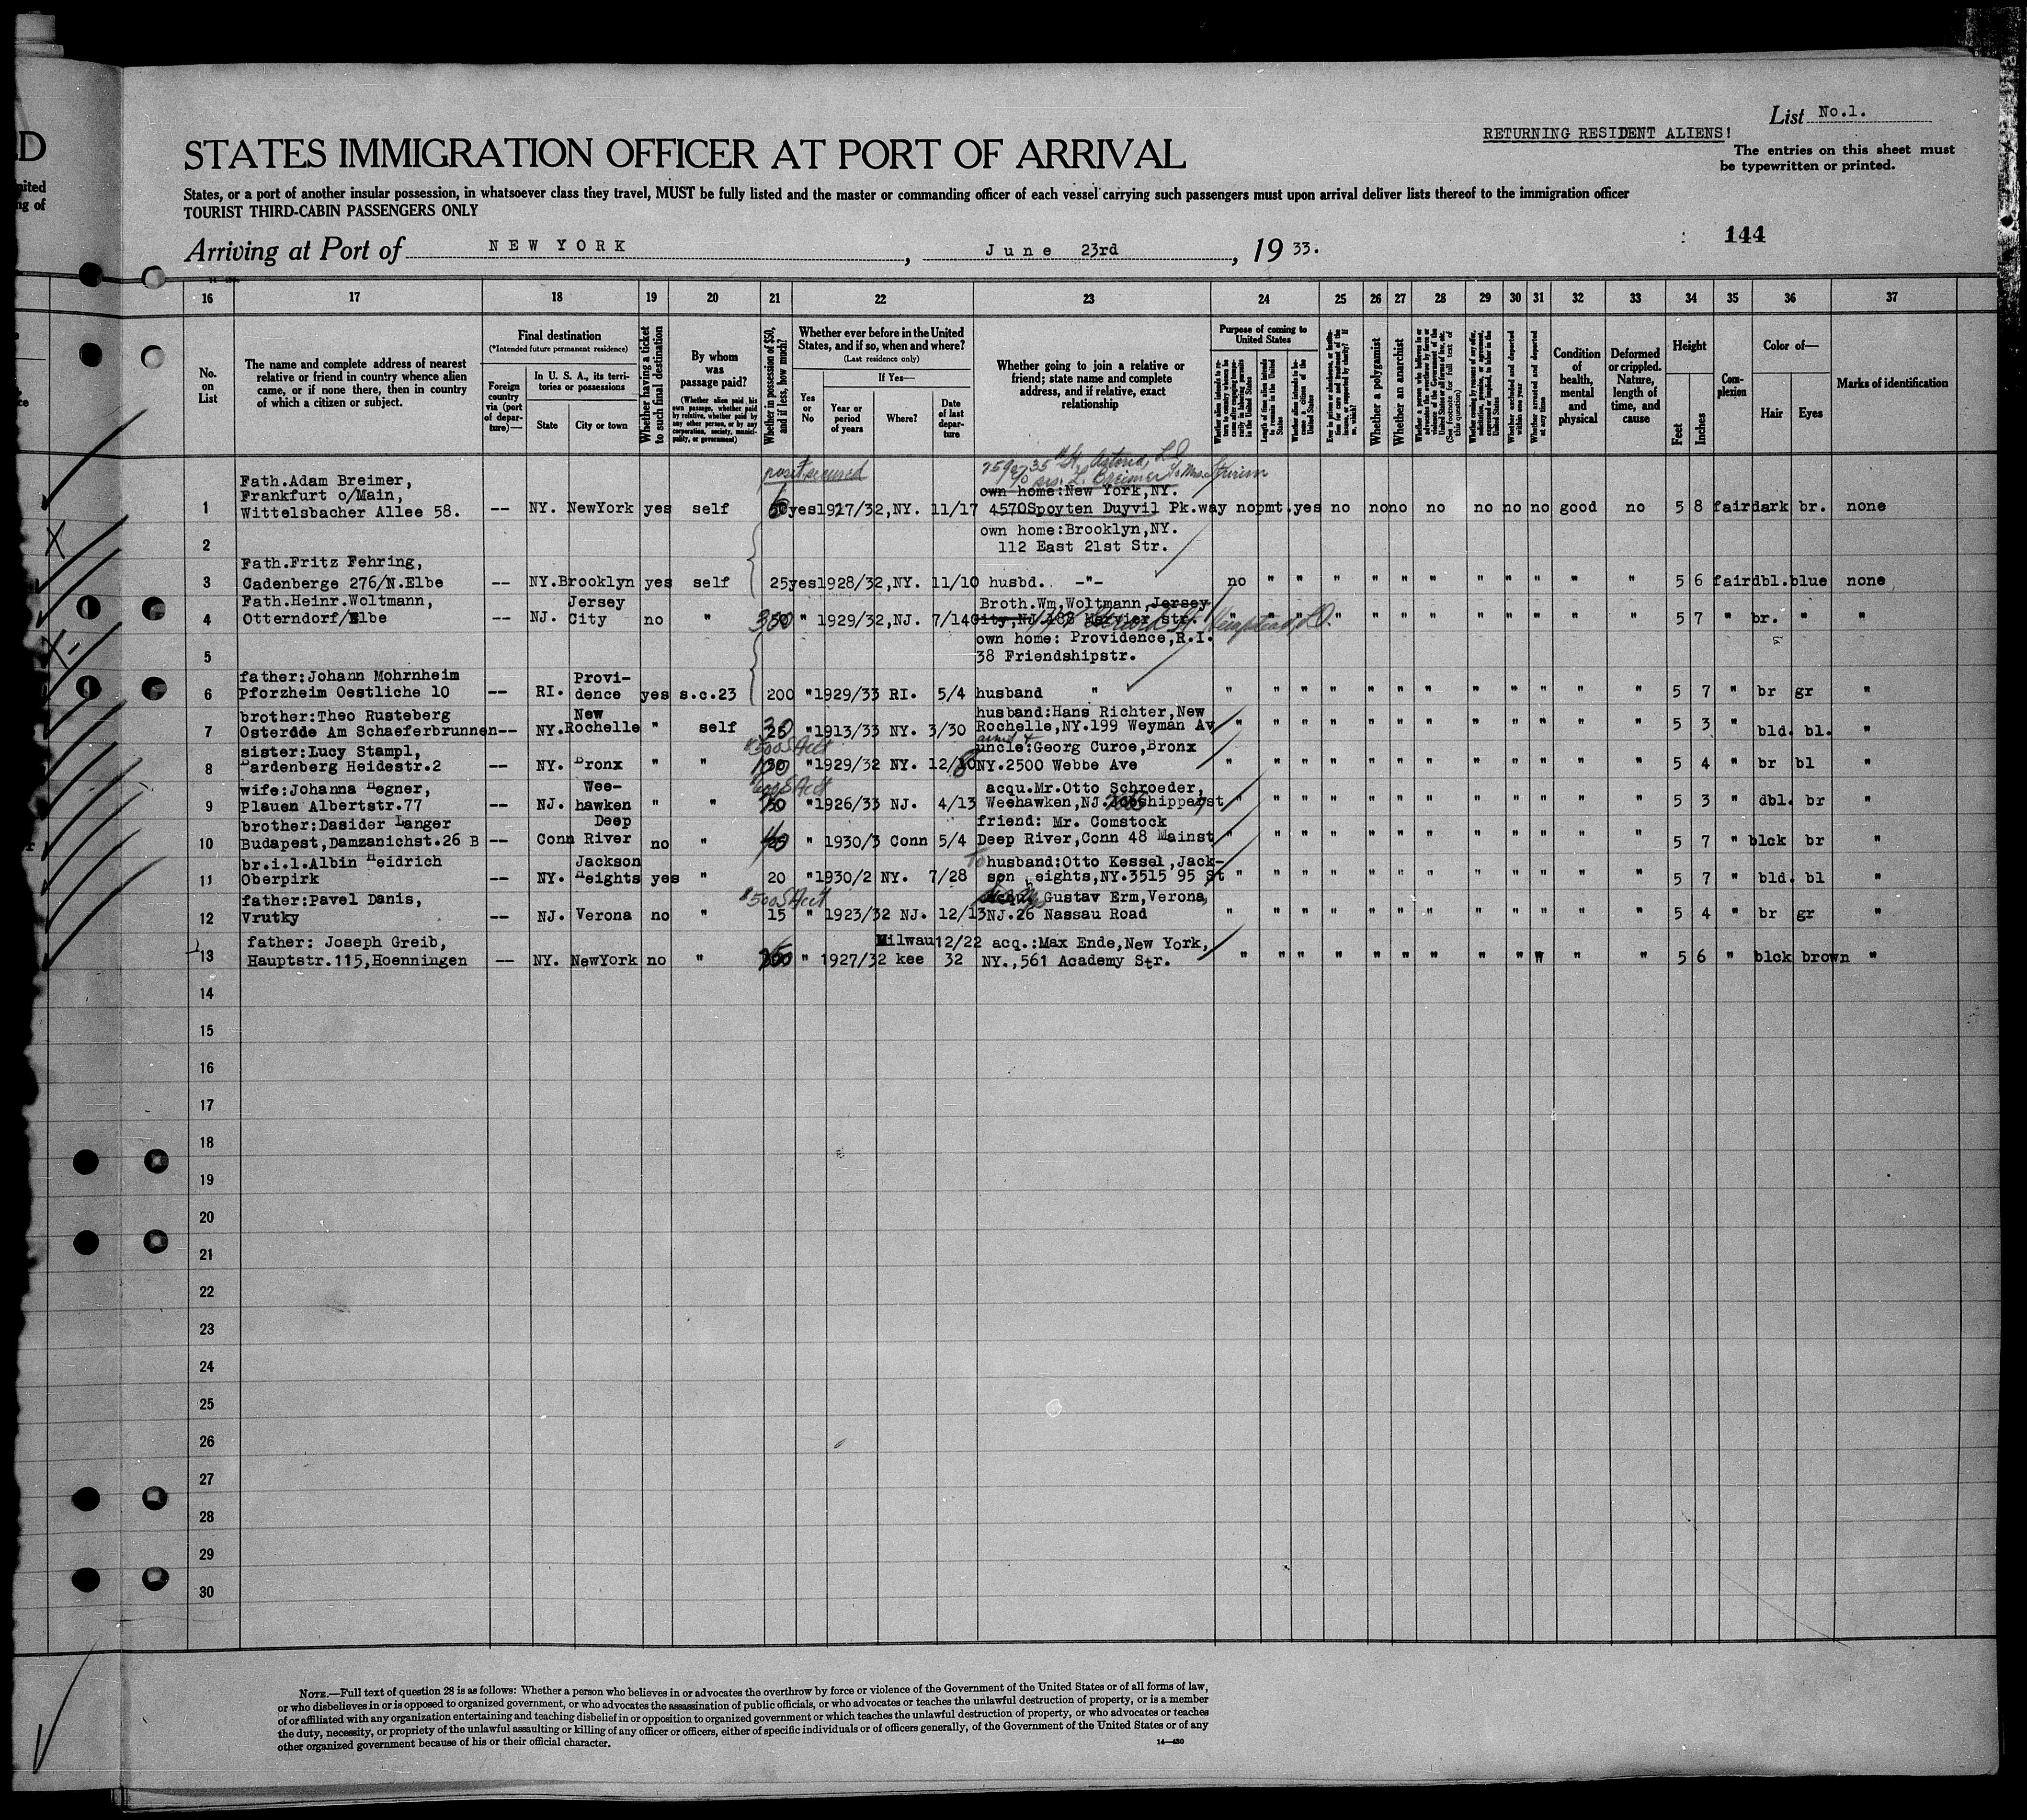 List No.1.
RETURNING RESIDENT ALIENS!
The entries on this sheet must
be typewritten or printed.
STATES IMMIGRATION OFFICER AT PORT OF ARRIVAL
States, or a port of another insular possession, in whatsoever class they travel, MUST be fully listed and the master or commanding officer of each vessel carrying such passengers must upon arrival deliver lists thereof to the immigration officer
TOURIST THIRD-CABIN PASSENGERS ONLY
144
Arriving at Port of NEW YORK, June 23rd, 19 33.
16 17 18 19 20 21 22 23 24 25 26 27 28 29 30 31 32 33 34 35 36 37
No. on List
The name and complete address of nearest
relative or friend in country whence alien
came, or if none there, then in country
of which a citizen or subject.
Final destination
(*Intended future permanent residence)
Foreign country via (port of departure)—
In U. S. A., its territories or possessions
State
City or town
Whether having a ticket to such final destination
By whom was passage paid?
(Whether alien paid his own passage, whether paid by relative, whether paid by any other person, or by any corporation, society, municipality, or government)
Whether in possession of $50, and if less, how much?
Whether ever before in the United
States, and if so, when and where?
(Last residence only)
Yes or No
If Yes—
Year or period of years
Where?
Date of last departure
Whether going to join a relative or
friend; state name and complete
address, and if relative, exact
relationship
Purpose of coming to United States
Whether a polygamist
Whether an anarchist
Condition of health, mental and physical
Deformed or crippled. Nature, length of time, and cause
Height
Feet
Inches
Complexion
Color of—
Hair
Eyes
Marks of identification
Fath.Adam Breimer,
Frankfurt o/Main, own home:New York,NY.
1 Wittelsbacher Allee 58. -- NY. NewYork yes self yes1927/32,NY. 11/17 4570Spoyten Duyvil Pk.way no pmt.yes no no no no no no no good no 5 8 fair dark br. none
own home:Brooklyn,NY.
2 112 East 21st Str.
Fath.Fritz Fehring,
3 Cadenberge 276/N.Elbe -- NY. Brooklyn yes self 25 yes1928/32,NY. 11/10 husbd. -"- no " " " " " " " " " " " 5 6 fair dbl. blue none
Fath.Heinr.Woltmann, Jersey Broth.Wm,Woltmann, Jersey
4 Otterndorf/Elbe -- NJ. City no " 350 " 1929/32,NJ. 7/14 City,NJ str. " " " " " " " " " " 5 7 " br. " "
own home: Providence,R.I.
5 38 Friendshipstr.
father:Johann Mohrnheim Provi-
6 Pforzheim Oestliche 10 -- RI. dence yes s.c.23 200 "1929/33 RI. 5/4 husband " " " " " " " " " " " " " 5 7 " br gr "
brother:Theo Rusteberg New husband:Hans Richter,New
7 Osterdde Am Schaeferbrunnen-- NY. Rochelle " self "1913/33 NY. 3/30 Rochelle,NY.199 Weyman Av " " " " " " " " " " " " 5 3 " bld. bl. "
sister:Lucy Stampl, $500 S Acct aunt & uncle:Georg Curoe,Bronx
8 Bardenberg Heidestr.2 -- NY. Bronx " " "1929/32 NY. NY.2500 Webbe Ave " " " " " " " " " " " " 5 4 " br bl "
wife:Johanna Hegner, Wee- acqu.Mr.Otto Schroeder,
9 Plauen Albertstr.77 -- NJ. hawken " " "1926/33 NJ. 4/13 Weehawken,NJ. " " " " " " " " " " " " 5 3 " dbl. br "
brother:Dasider Langer Deep friend: Mr. Comstock
10 Budapest,Damzanichst.26 B -- Conn River no " " 1930/3 Conn 5/4 Deep River,Conn 48 Mainst " " " " " " " " " " " " 5 7 " blck br "
br.i.l.Albin Heidrich Jackson To husband:Otto Kessel,Jack-
11 Oberpirk -- NY. Heights yes " 20 "1930/2 NY. 7/28 son eights,NY.3515 95 St " " " " " " " " " " " " 5 7 " bld. bl "
father:Pavel Danis, $500 S Acct Gustav Erm,Verona,
12 Vrutky -- NJ. Verona no " 15 " 1923/32 NJ. 12/13 NJ.26 Nassau Road " " " " " " " " " " " " 5 4 " br gr "
father: Joseph Greib, Milwau 12/22 acq.:Max Ende,New York,
13 Hauptstr.115,Hoenningen -- NY. NewYork no " " 1927/32 kee 32 NY.,561 Academy Str. " " " " " " " " " " " " 5 6 " blck brown "
14
15
16
17
18
19
20
21
22
23
24
25
26
27
28
29
30
NOTE.—Full text of question 28 is as follows: Whether a person who believes in or advocates the overthrow by force or violence of the Government of the United States or of all forms of law,
or who disbelieves in or is opposed to organized government, or who advocates the assassination of public officials, or who advocates or teaches the unlawful destruction of property, or is a member
of or affiliated with any organization entertaining and teaching disbelief in or opposition to organized government or which teaches the unlawful destruction of property, or who advocates or teaches
the duty, necessity, or propriety of the unlawful assaulting or killing of any officer or officers, either of specific individuals or of officers generally, of the Government of the United States or of any
other organized government because of his or their official character.
14—430